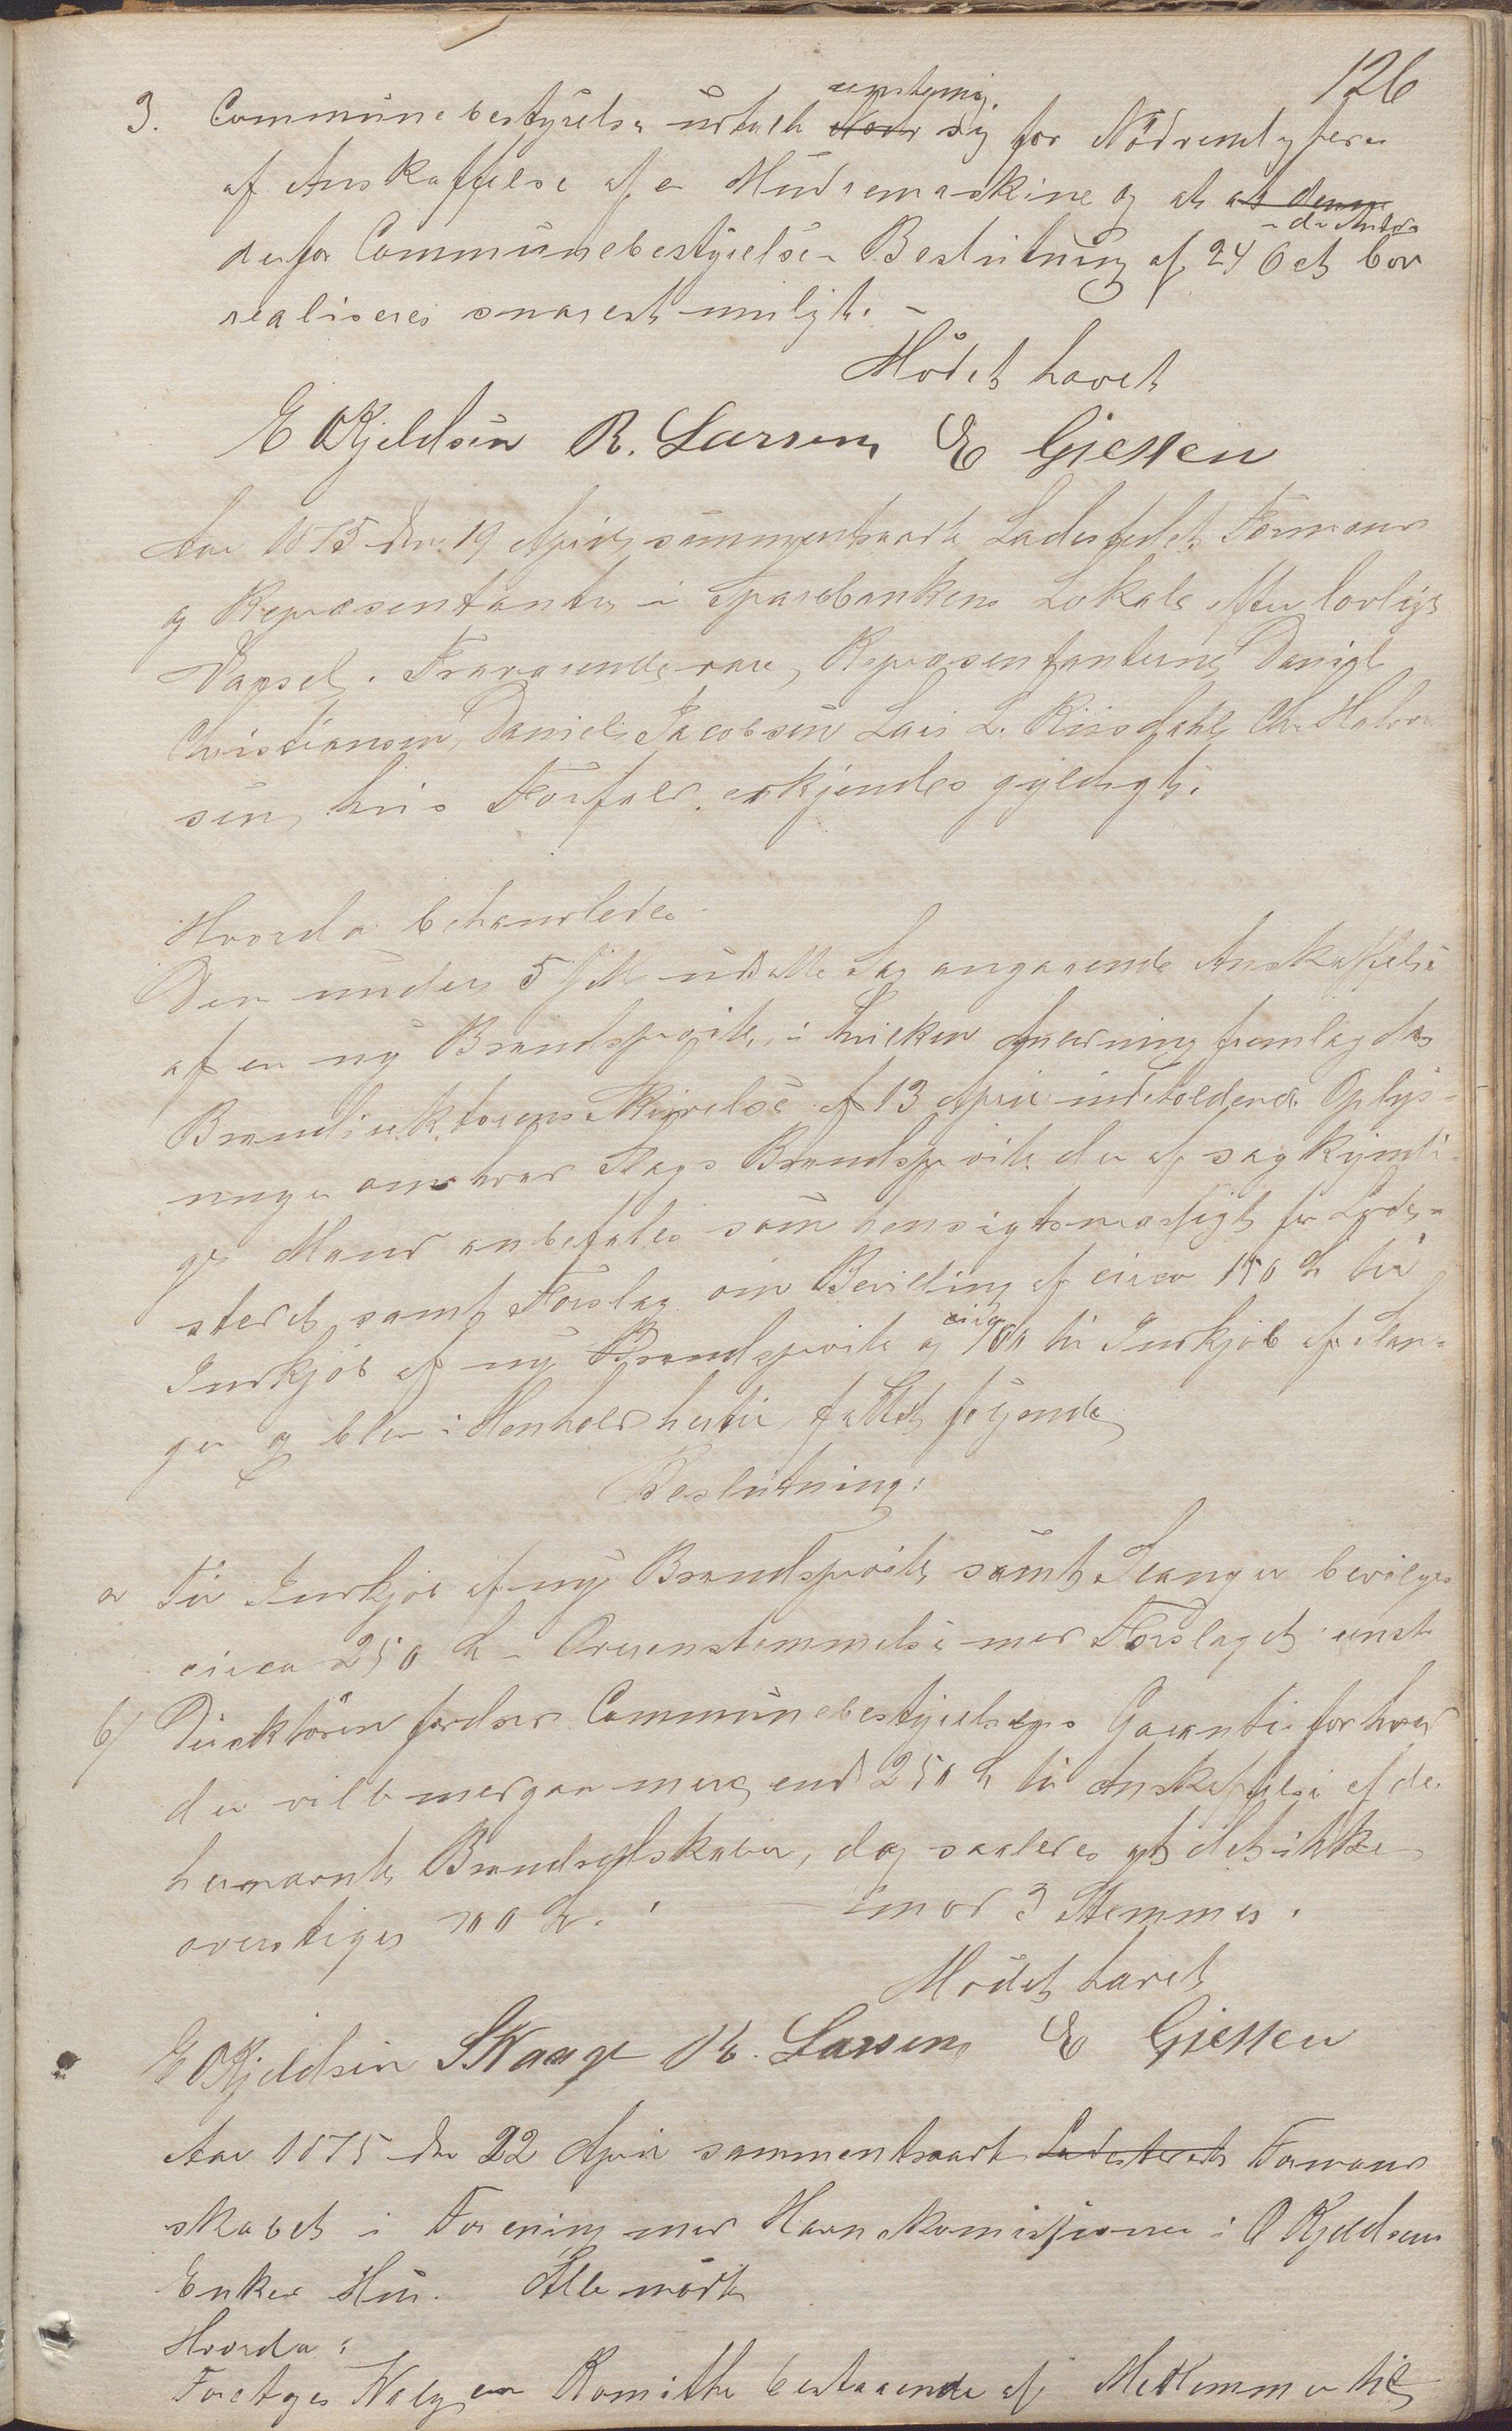 126
3. Communebestyrelsen udtalte enstemig sig for Nödvendigheden
af Anskaffelse af en Muddermaskine og at at denne
derfor Communebestyrelsens Beslutning af 24 Oct bör
realiseres snarest muligt. –
Mödet hævet
E OKjeldsen R. Larsen E Giessen
Aar 1875 den 19 April sammentraadte Ladestedets Formænd
og Repræsentanter i Sparebankens Lokale efter lovligt
Varsel. Fraværende vare, Repræsentanterne Daniel
Christiansen, Daniel Jacobsen Lars L. Riisdahl Chr. Halvor
sen, hvis Forfald erkjendes gyldigt.
Hvorda behandledes
Den under 5 udsatte Sag angaaende Anskaffelse
af en ny Brandspröite, i hvilken Anledning fremlagdes
Branddirektörens Skrivelse af 13 April indeholdende Oplys-
ninger om hvad Slags Brandspröite der af sagkyndi-
ge Mænd anbefales som hensigtsmæssigt for Lade-
stedet samt Forslag om Bevilling af circa 150 til
Indkjöb af ny Brandspröite og circa 100 til Indkjöb af Slan-
ger og blev i Henhold hertil fattet fölgende
Beslutning:
a Til Indkjöb af ny Brandspröite samt Slanger bevilges
circa 250 i Overenstemmelse med Forslaget enst
b/ Direktören fordrer Communebestyrelsens Garanti for hvad
der vil medgaa mere end 250 til Anskaffelse af de
hernævnte Brandredskaber, dog saaledes at det ikke
overstiger 100 imod 3 Stemmer.
Mödet hævet
E OKjeldsen SWaage R. Larsen E Giessen
Aar 1875 den 22 April sammentraadte Ladestedets Formand
skabet i Forening med Havnekomissionen i O Kjeldsens
Enkes Hus. Alle mödte
Hvorda:
Foretages Valg en Komitte bestaaende af Medlemmer til